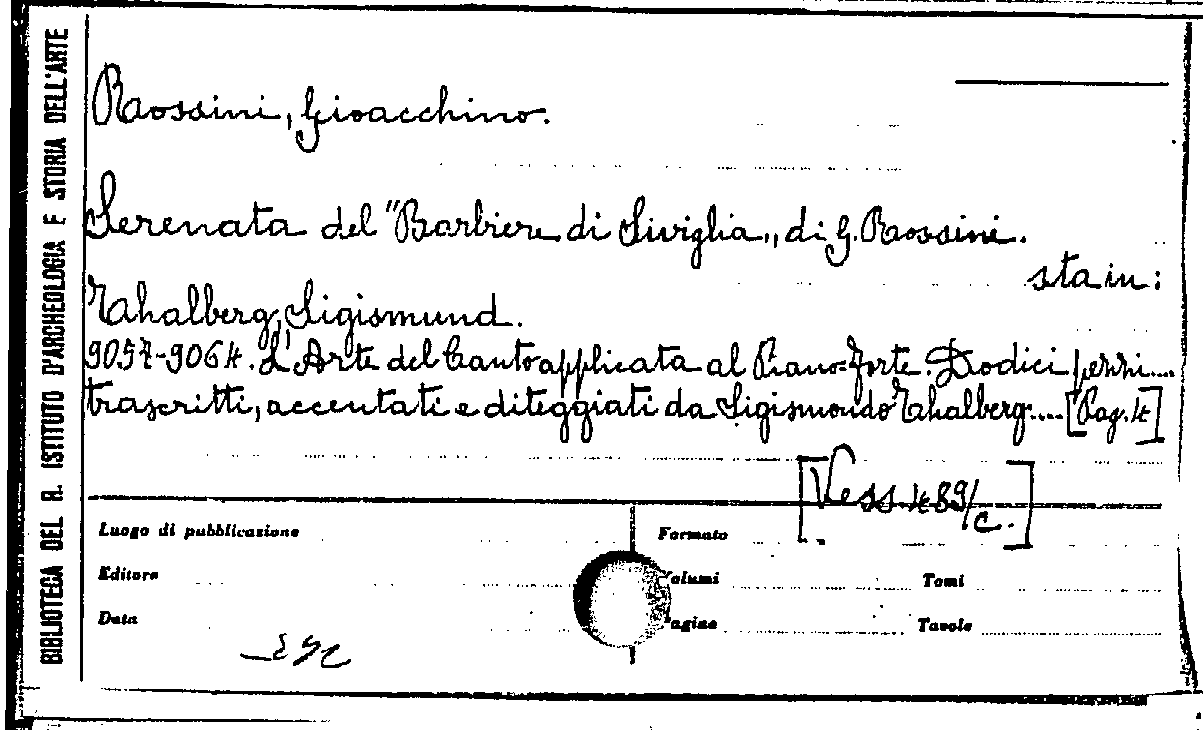 BIBLIOTECA DEL R. ISTITUTO D'ARCHEOLOGIA E STORIA DELL'ARTE
Rossini, Gioacchino.
Serenata del "Barbiere di Siviglia,, di G. Rossini.
sta in:
Thahalberg, Sigismund.
9057-9064. L'Arte del Canto applicata al Piano-forte. Dodici pezzi....
trascritti, accentati e diteggiati da Sigismondo Thahalberg.... [Pag. 4]
[Vess. 489/c.]
Luogo di pubblicazione
Formato
Editore
Volumi
Tomi
Data
Pagine
Tavole